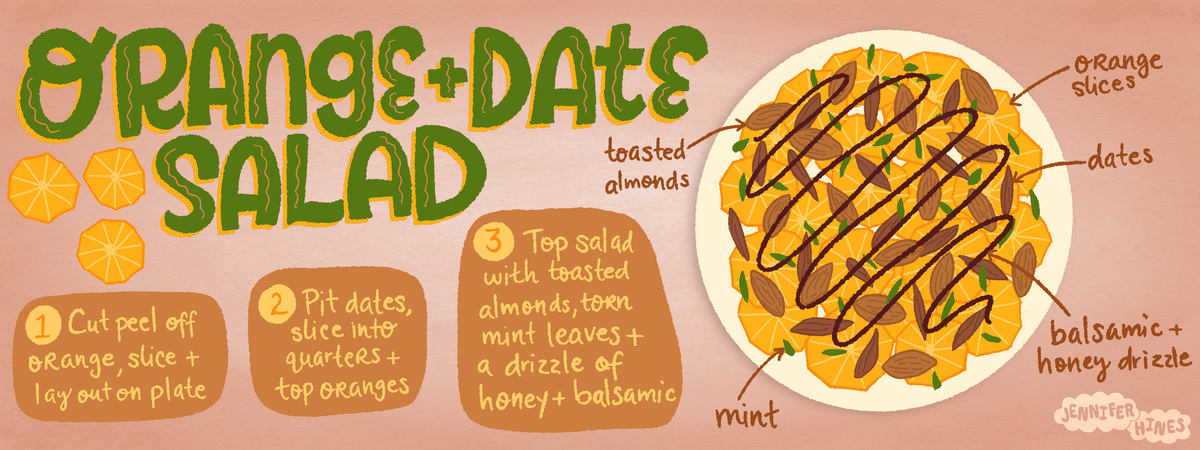 ORANGE + DATE
SALAD
1 Cut peel off
orange, slice +
lay out on plate
2 Pit dates,
slice into
quarters +
top oranges
3 Top salad
with toasted
almonds, torn
mint leaves +
a drizzle of
honey + balsamic
toasted
almonds
orange
slices
dates
balsamic +
honey drizzle
mint
JENNIFER
HINES